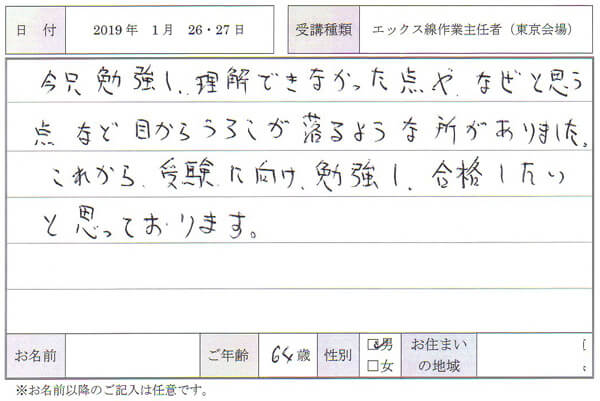 日 付 2019年 1月 26・27日 受講種類 エックス線作業主任者（東京会場）
勉強し、理解できなかった点や、なぜと思う
点など目からうろこが落るような所がありました。
これから、受験に向け、勉強し、合格したい
と思っております。
お名前 ご年齢 64歳 性別 ☑男 お住まい
□女 の地域
※お名前以降のご記入は任意です。